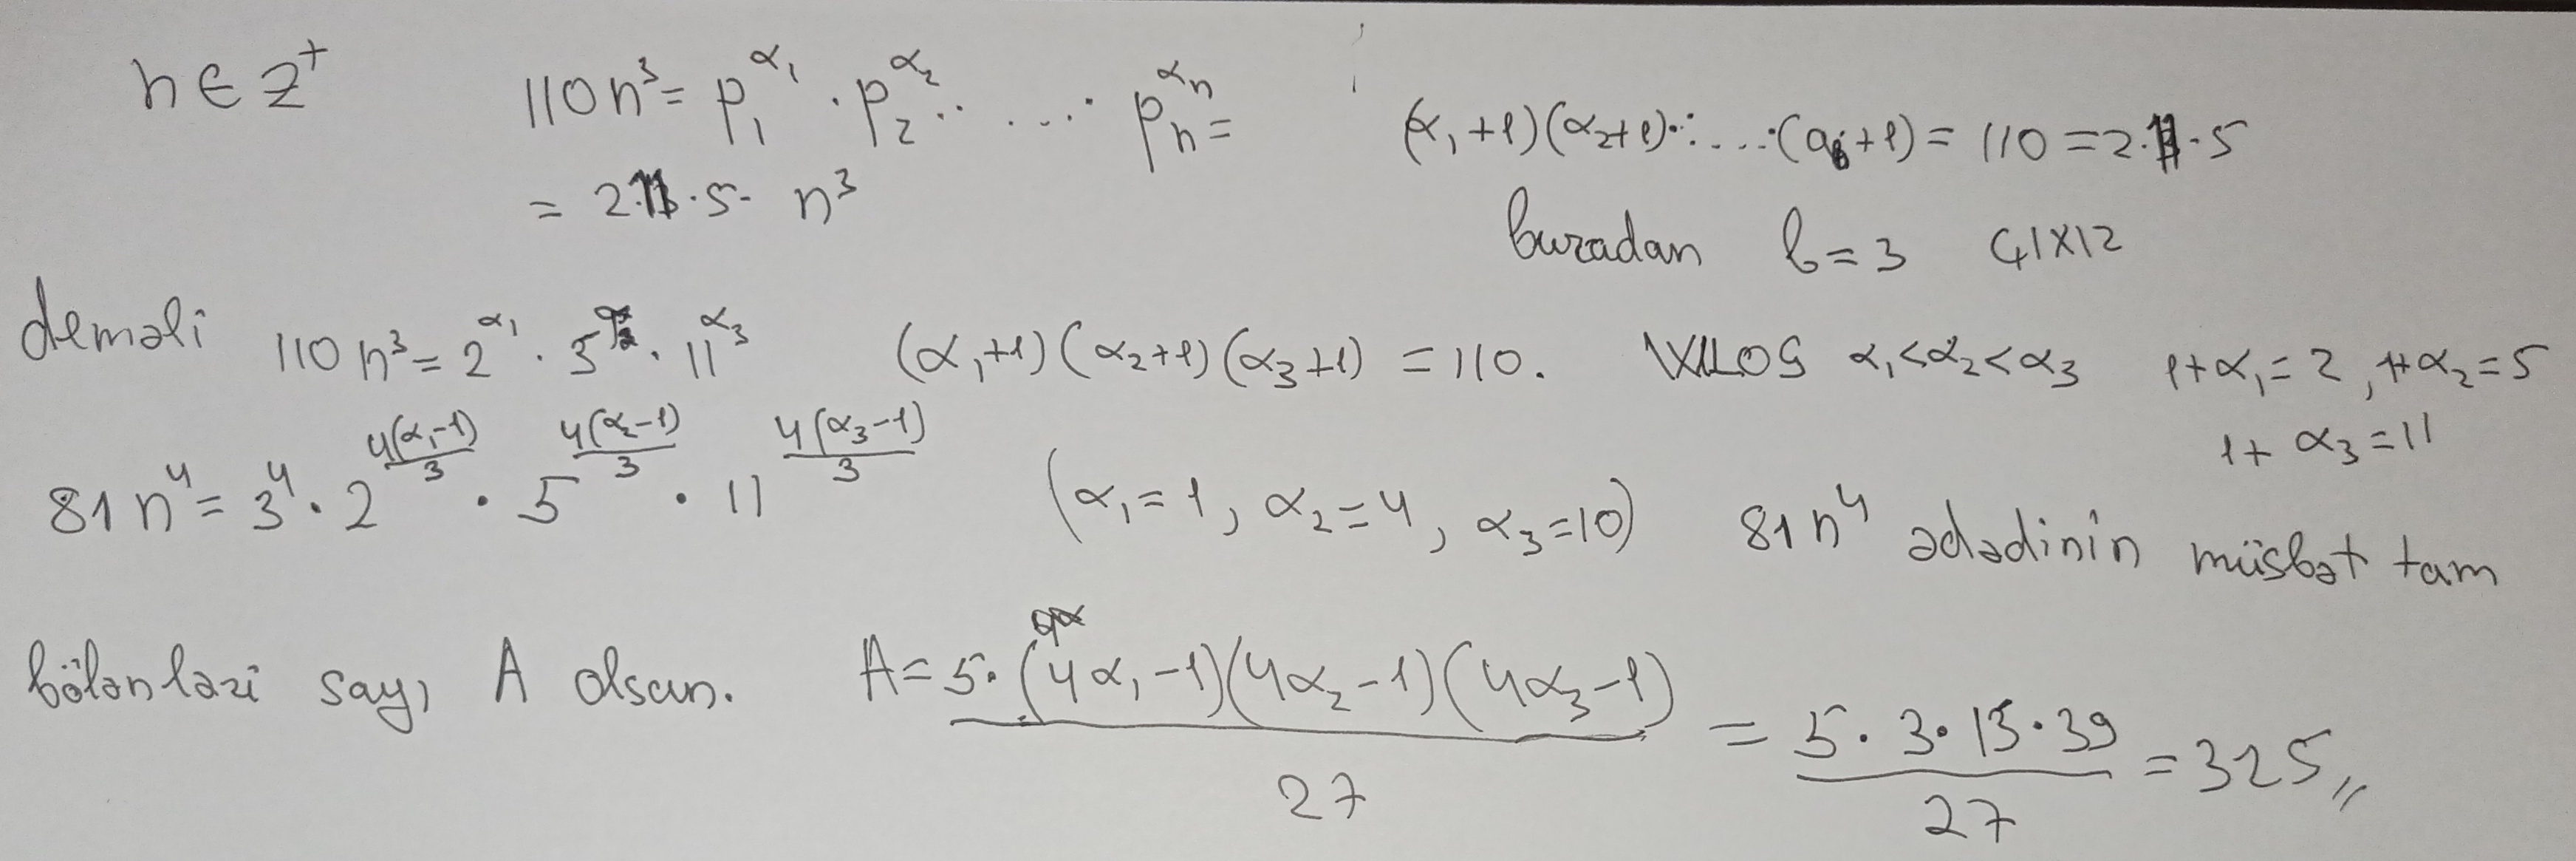 n∈Z⁺ 110n³ = p₁^α₁ · p₂^α₂ · ..... · pₙ^αₙ = (α₁+1)(α₂+1)·....·(α₆+1) = 110 = 2·11·5
= 2·11·5· n³ buradan b=3 41x12
deməli 110n³ = 2^α₁ · 5^α₂ · 11^α₃ (α₁+1)(α₂+1)(α₃+1) = 110. WLOG α₁<α₂<α₃ 1+α₁=2, 1+α₂=5
1+α₃=11
81n⁴ = 3⁴ · 2^(4(α₁-1)/3) · 5^(4(α₂-1)/3) · 11^(4(α₃-1)/3) (α₁=1, α₂=4, α₃=10) 81n⁴ ədədinin müsbət tam
bölənləri sayı A olsun. A = 5·(4α₁-1)(4α₂-1)(4α₃-1)/27 = 5·3·15·39/27 = 325,,